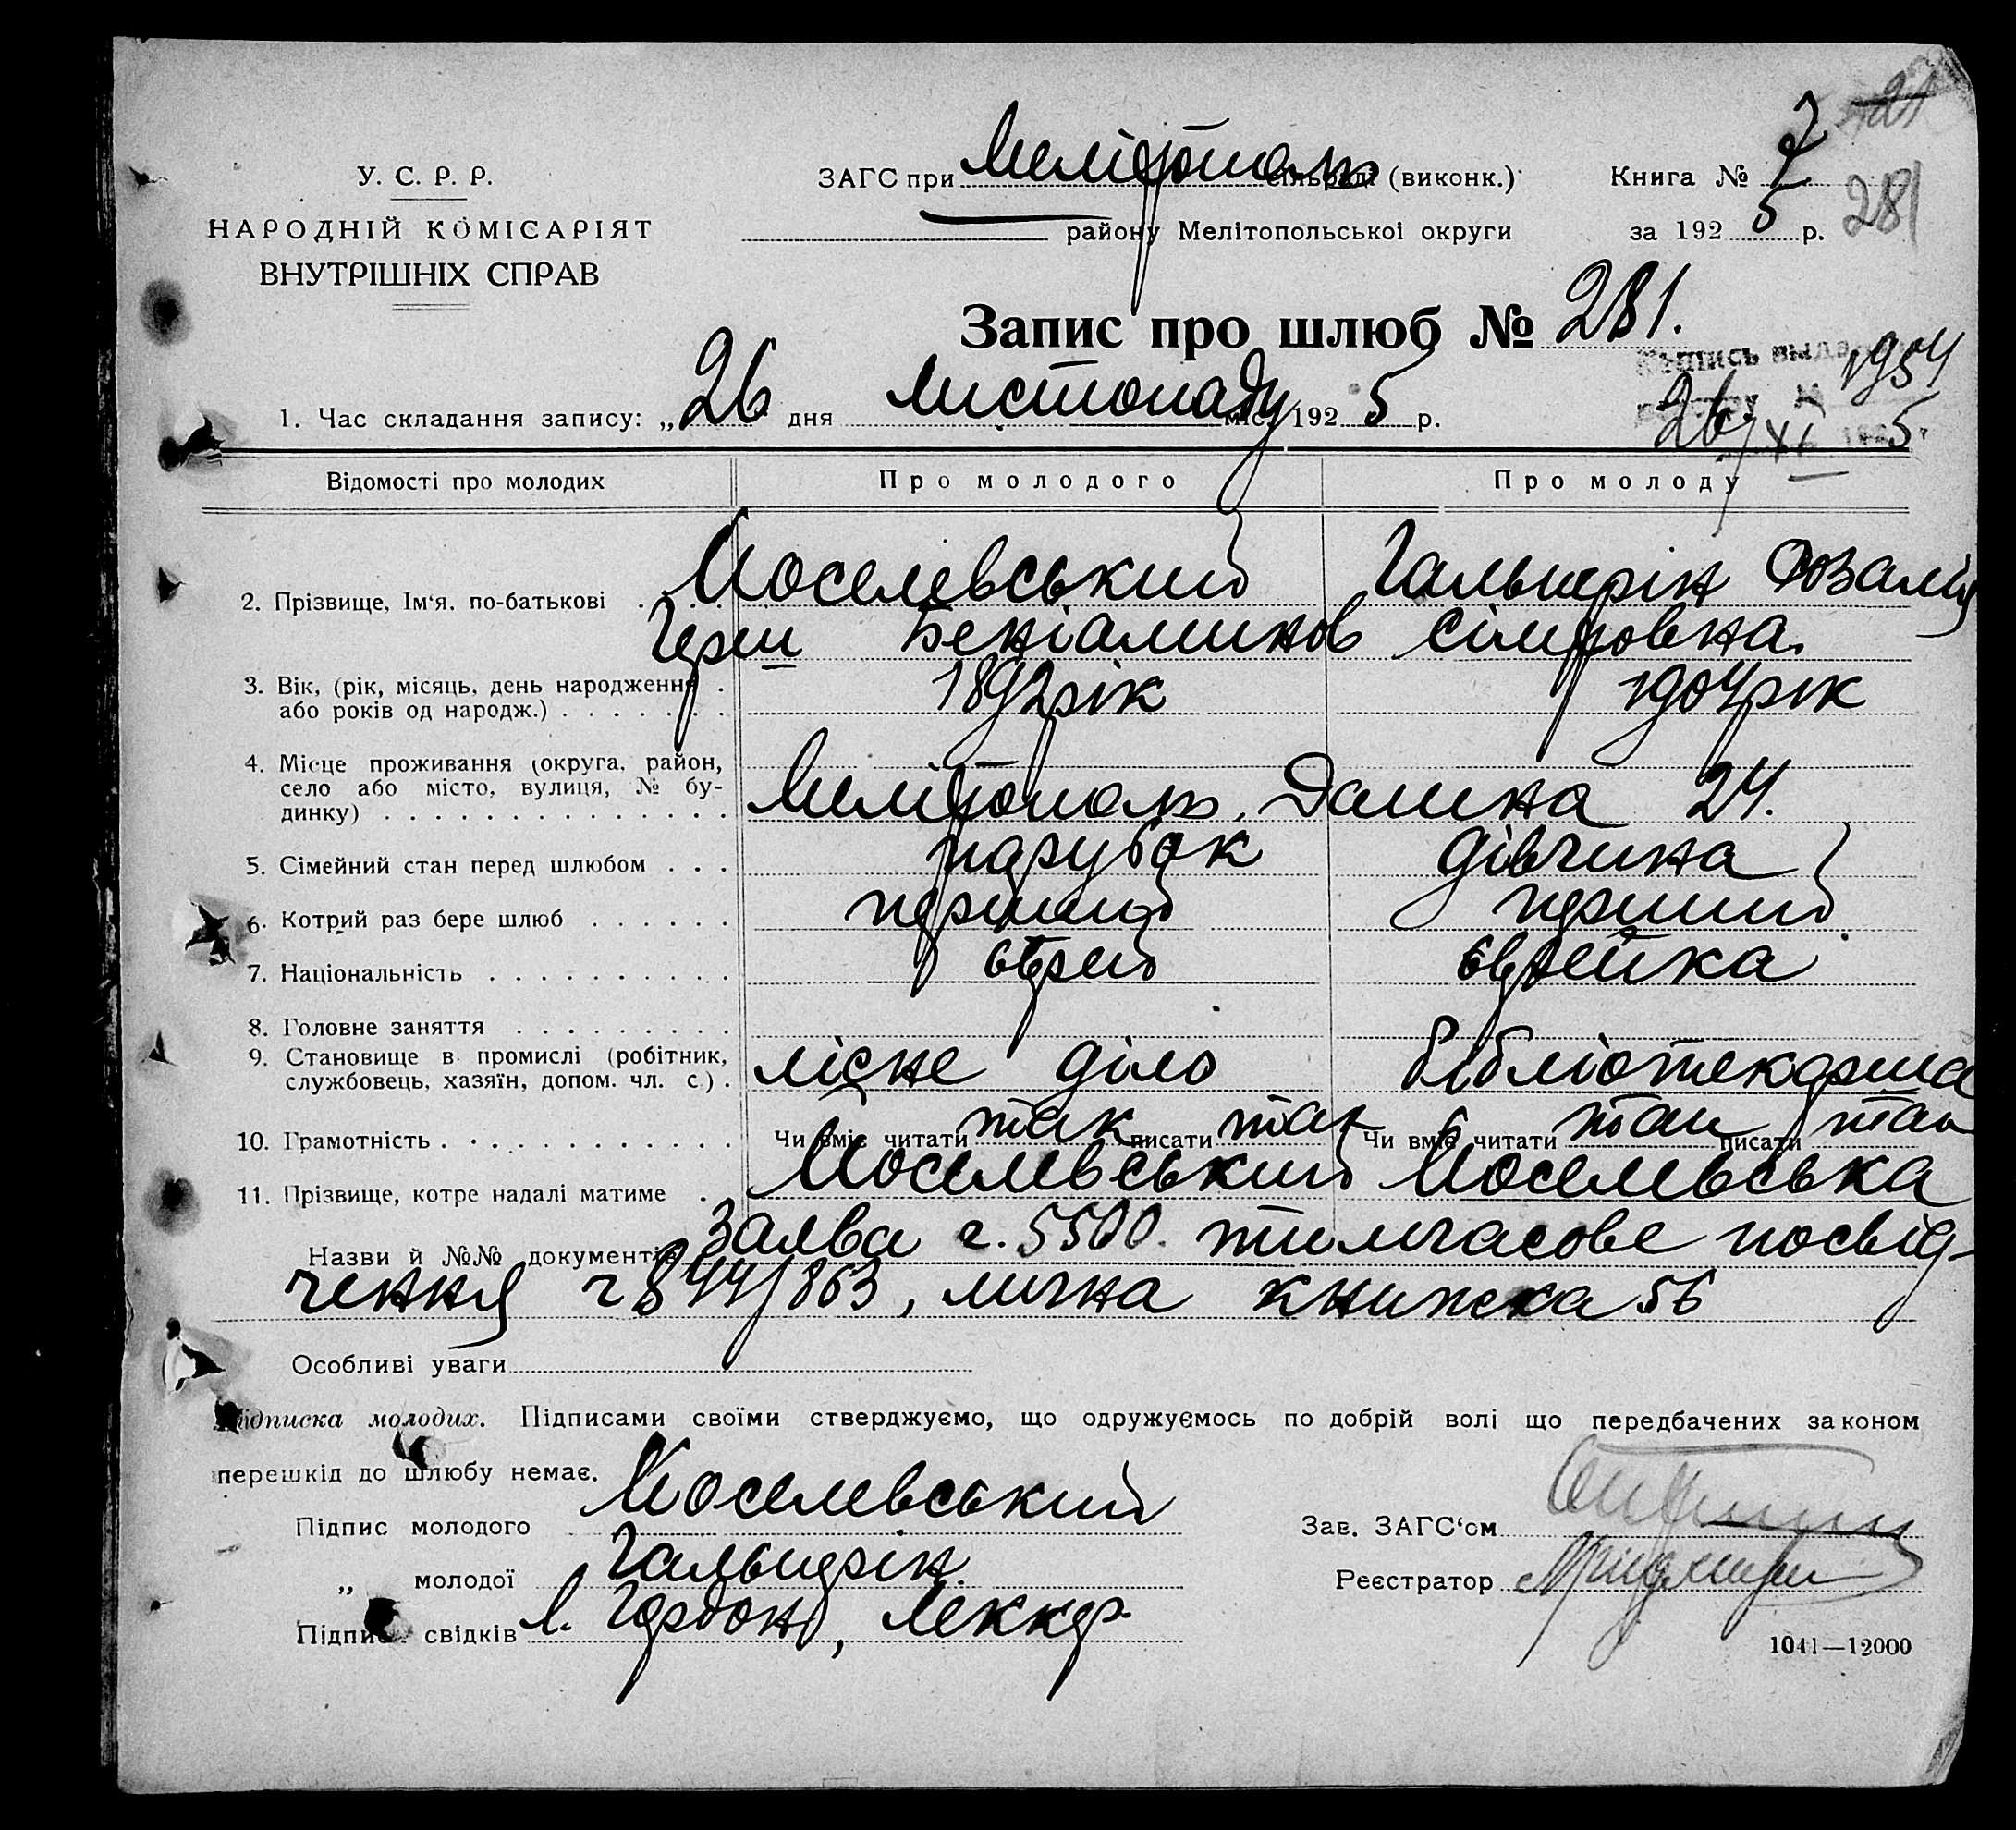 У. С. Р. Р.
НАРОДНІЙ КОМІСАРІЯТ
ВНУТРІШНІХ СПРАВ
ЗАГС при Мелітополь сільраді (виконк.)
району Мелітопольськоі округи
Книга № 7
за 1925 р.
281
Запис про шлюб № 281.
1954
26/XI 5
1. Час складання запису: „26 дня листопаду міс. 1925 р.
Відомості про молодих Про молодого Про молоду
2. Прізвище, Ім'я, по-батькові Моселевський Гальперін Розалія
Герш Беніаминов
3. Вік, (рік, місяць, день народження або років од народж.) 1892 рік 1904 рік
4. Місце проживання (округа, район,
село або місто, вулиця, № бу-
динку) Мелітополь, 24.
5. Сімейний стан перед шлюбом парубок дівчина
6. Котрий раз бере шлюб перший перший
7. Національність еврей єврейка
8. Головне заняття
9. Становище в промислі (робітник,
службовець, хазяїн, допом. чл. с.) лісне діло бібліотекарша
10. Грамотність Чи вміє читати так писати так Чи вміє читати так писати так
11. Прізвище, котре надалі матиме Моселевський Моселевська
Назви й №№ документів Заява ч. 5500. тимчасове посвід-
чення ч 844/863, лична книжка 56
Особливі уваги
Підписка молодих. Підписами своїми стверджуємо, що одружуємось по добрій волі що передбачених законом
перешкід до шлюбу немає.
Підпис молодого Моселевський
„ молодої Гальперін
Підпис свідків Л. Гордон,
Зав. ЗАГС'ом
Реєстратор
1041—12000